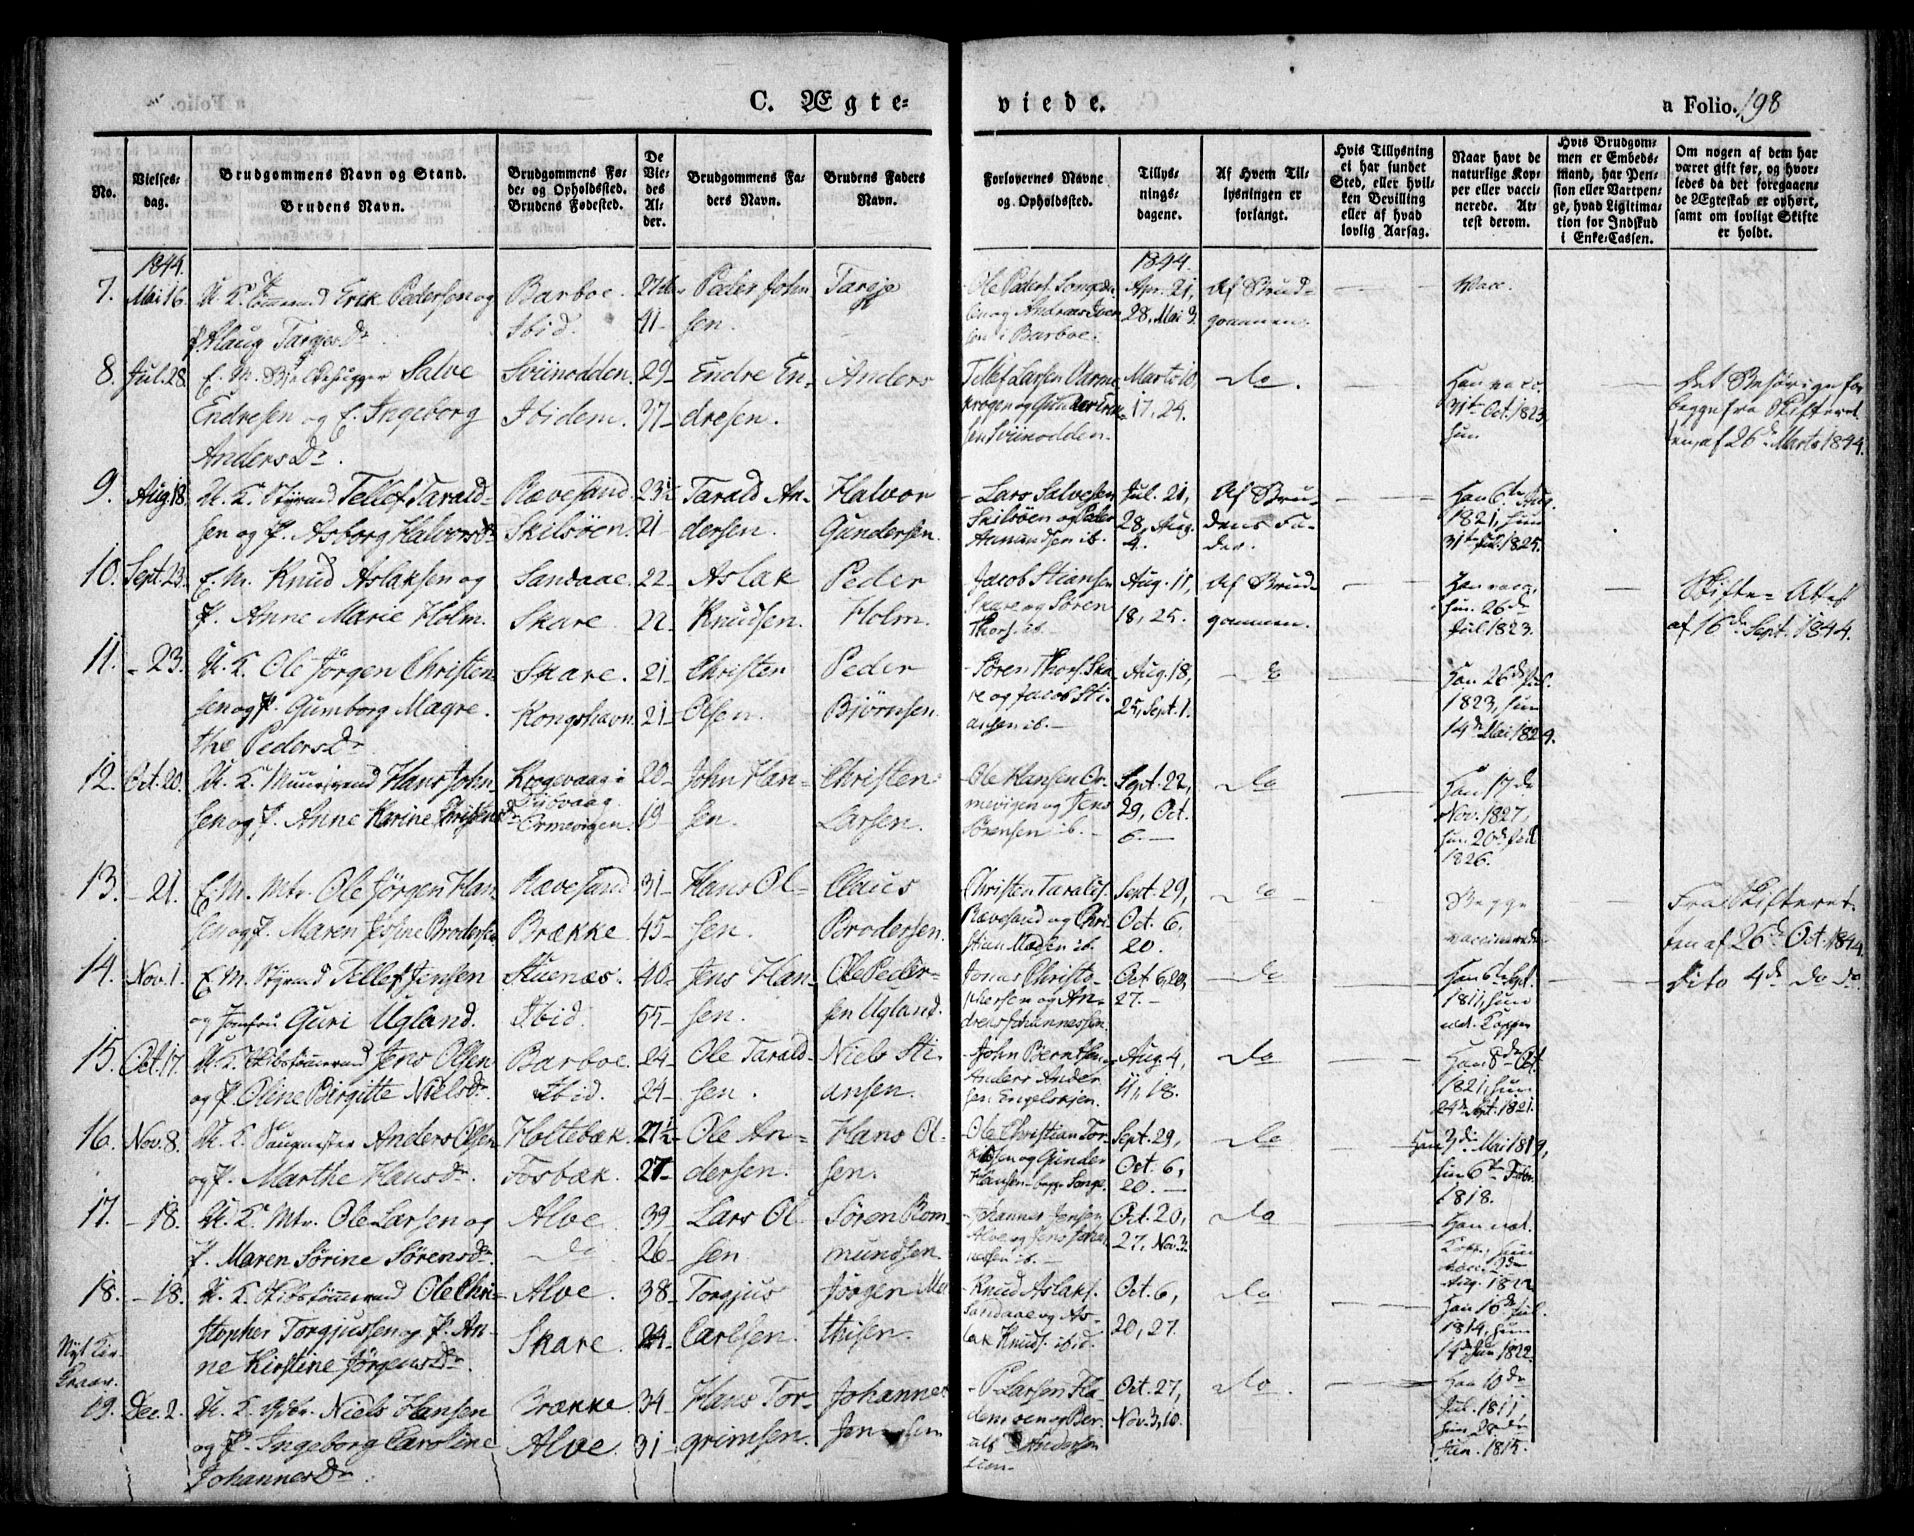 C. Ægte-
viede.
a Folio. 198
No.
Vielses-
dag.
Brudgommens Navn og Stand.
Brudens Navn.
Brudgommens Fø-
de- og Opholdssted.
Brudens Fødested.
De
Vie-
des
Al-
der.
Brudgommens Fa-
ders Navn.
Brudens Faders
Navn.
Forlovernes Navne
og Opholdssted.
Tillys-
nings-
dagene.
Af Hvem Til-
lysningen er
forlangt.
Hvis Tillysning
ei har fundet
Sted, eller hvil-
ken Bevilling
eller af hvad
lovlig Aarsag.
Naar havt de
naturlige Kop-
per eller vacci-
nerede. At-
test derom.
Hvis Brudgom-
men er Embeds-
mand, har Pen-
sion eller Vartpen-
ge, hvad Ligitima-
tion for Indskud
i Enke-Cassen.
Om nogen af dem har
været gift før, og hvor-
ledes da det foregaaen-
de Ægteskab er ophørt,
samt om lovligt Skifte
er holdt.
1844.
7. Mai 16. U. K. Erik Pedersen og
P. Alaug TarjesDr
Barboe.
Ibid.
41
Peder John-
sen.
Tarje
Ole Peders.
og Andreas
sen i Barboe.
1844.
Apr. 21,
28, Mai 3.
Af Brud-
gommen.
Vacc.
8. Jul. 28. E. M. Salve
Endresen og E. Ingeborg
AndersDr.
Sviinodden.
Ibidem.
29
37
Endre En-
dresen.
Anders
Tellef Larsen
krogen og Gunder
sen Sviinodden.
Marts 10,
17, 24.
do.
Han vacc.
31te Oct. 1823,
hun
Det Besørgede for
begge fra Skifteret
ten, af 26de Marts 1844.
9. Aug. 18. U. K. Styrmd Tellef Tarald-
sen og P. Asborg HalvorsDr
Rævesand.
Skilsöen.
23½
21
Tarald An-
dersen.
Halvor
Gundersen.
Lars Salvesen
Skilsöen og Peder
Aanundsen ib.
Jul. 21,
28, Aug.
4.
Af Bru-
dens Fa-
der.
Han 6te Aug.
1821, hun
31te Jul. 1825.
10. Sept. 23. E. M. Knud Aslaksen og
P. Anne Marie Holm.
Sandaae.
Skare.
22
22
Aslak
Knudsen.
Peder
Holm.
Jacob Stiansen
Skare og Sören
Thors. ib.
Aug. 11,
18, 25.
Af Brud-
gommen.
Han vacc.,
hun 26de
Jul. 1823.
Skifte-Attest
af 16de Sept. 1844.
11. - 23. U. K. Ole Jörgen Christen-
sen og P. Gumborg Magre-
the PedersDr
Skare.
Kongshavn.
21
21
Christen
Olsen.
Peder
Björnsen.
Sören Thors. Ska-
re og Jacob Sti-
ansen ib.
Aug. 18,
25, Sept. 1.
do
Han 26de Jul.
1823, hun
14de Mai 1824.
12. Oct. 20. U. K. Muurmd Hans John-
sen og P. Anne Karine ChristensDr
Krogevaag i
Dybvaag
Ormevigen.
20
19
John Han-
sen.
Christen
Larsen.
Ole Hansen Or-
mevigen og Jens
Sörensen ib.
Sept. 22,
29, Oct.
6.
do
Han 17de
Nov. 1827,
hun 20de Jul.
1826.
13. - 21. E. M. Mtr. Ole Jörgen Han-
sen og P. Maren Brodersen
Rævesand
Brække.
31
45
Hans Ol-
sen.
Claus
Brodersen.
Christen Taralds.
Rævesand og Chri-
stian Madsen ib.
Sept. 29,
Oct. 6,
20.
do
Begge
vaccinerede
Fra Skifteret-
ten af 26de Oct. 1844.
14. Nov. 1. E. M. Styrmd Tellef Jensen
og Jomfru Guri Ugland.
Stuenæs.
Ibid.
40
55
Jens Han-
sen.
Ole Peder-
sen Ugland.
Jonas Christo-
phersen og An-
dreas Johannessen.
Oct. 6, 20,
27.
do
Han 6te Sept.
1811, hun
nat. Kopper
Dito 4de do do.
15. Oct. 17. U. K. Skibstömmermd Jens Olsen
og P. Oline Birgitte NielsDr.
Barboe
Ibid.
24
24
Ole Tarald-
sen.
Niels Sti-
ansen.
John Berntsen
Anders Ander-
sen Engelskjen.
Aug. 4,
11, 18.
do
Han 8de Oct.
1821, hun
24de Sept. 1821.
16. Nov. 8. U. K. Anders Olsen
og P. Marthe HansDr.
Holtebæk.
Fosbæk.
21½
27
Ole An-
dersen.
Hans Ol-
sen.
Ole Christian Tor-
kildsen og Gunder
Hansen begge Songe.
Sept. 29,
Oct. 6,
20.
do
Han 3de Mai 1819,
hun 6te Febr.
1818.
17. - 18. U. K. Mtr. Ole Larsen og
P. Maren Sörine SörensDr.
Alve
do
39
26
Lars Ol-
sen
Sören Rom-
mundsen.
Johannes Jensen
Alve og Jens Johan-
nessen ib.
Oct. 20,
27, Nov. 3.
do
Han nat.
Kopp., hun
vacc. 2de
Aug. 1822
18. - 18. U. K. Skibstömmermd Ole Chri-
stopher Torgjussen og P. An-
ne Kirstine JörgensDr.
Alve.
Skare.
38
24
Torgjus
Carlsen.
Jörgen Ma-
thisen.
Knud Aslaks.
Sandaae og As-
lak Knuds. ibid.
Oct. 6,
20, 27.
do
Han 16de Jul.
1814, hun
14de Jun. 1822.
19. Dec. 2. U. K. Niels Hansen
og P. Ingeborg Caroline
JohannesDr.
Brække.
Alve.
34
31
Hans Tor-
grimsen.
Johannes
Jensen
P. Larsen Fla-
demoen og Ber-
ulf Andersen
Oct. 27,
Nov. 3, 10.
do.
Han 10de
Jul. 1811,
hun 28de
Jan. 1815.